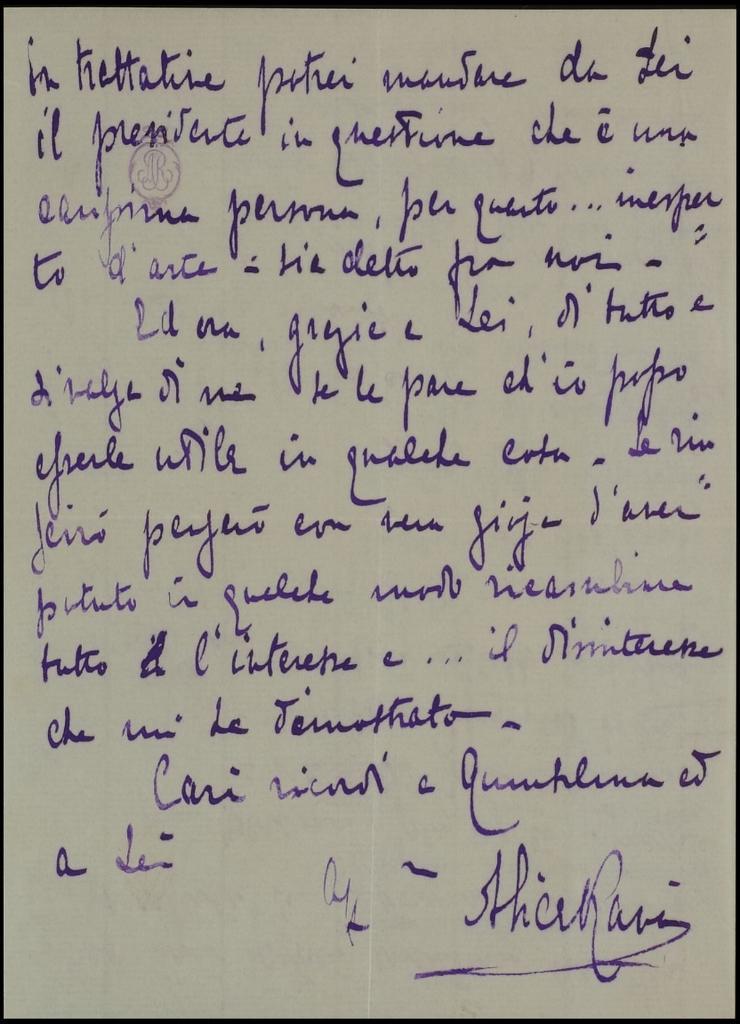 in trattative potrei mandare da Lei
il presidente in questione che è una
carissima persona, per quanto... inesper
to d'arte - sia detto fra noi -
Ed ora, grazie a Lei, di tutto e
si valga di me se le pare ch'io possa
esserle utile in qualche cosa - Le riu
scirò perciò con vera gioja d'aver
potuto in qualche modo
tutto l'interesse e ... il disinteresse
che mi ha dimostrato -
Cari ricordi a ed
a Lei
Alice Ravà